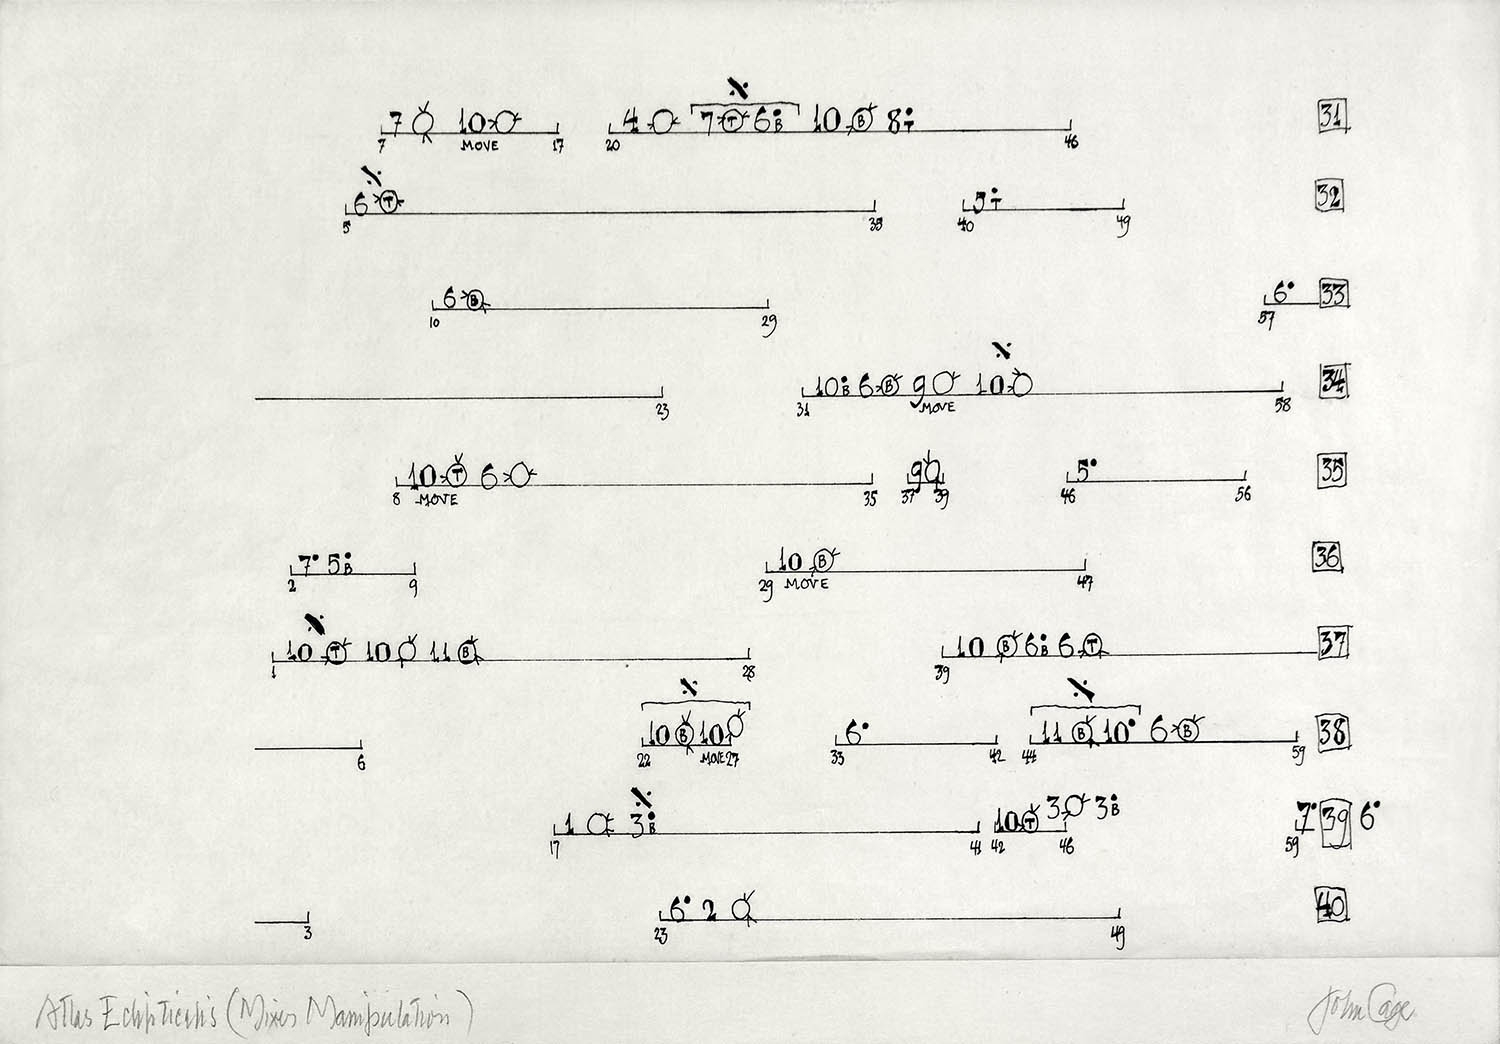 7 10 4 7 T 6 B 10 B 8 T 31
7 MOVE 17 20 46
6 T 5 T 32
5 35 40 49
6 B 6 33
10 29 57
10 B 6 B 9 10 34
23 31 MOVE 58
10 T 6 9 5 35
8 MOVE 35 37 39 46 56
7 5 B 10 B 36
2 9 29 MOVE 47
10 T 10 11 B 10 B 6 B 6 T 37
1 28 39
10 B 10 6 11 B 10 6 B 38
6 22 MOVE 27 33 42 44 59
1 3 B 10 T 3 3 B 7 39 6
17 41 42 46 59
6 2 40
3 23 49
Atlas Eclipticalis (Mixer Manipulation) John Cage